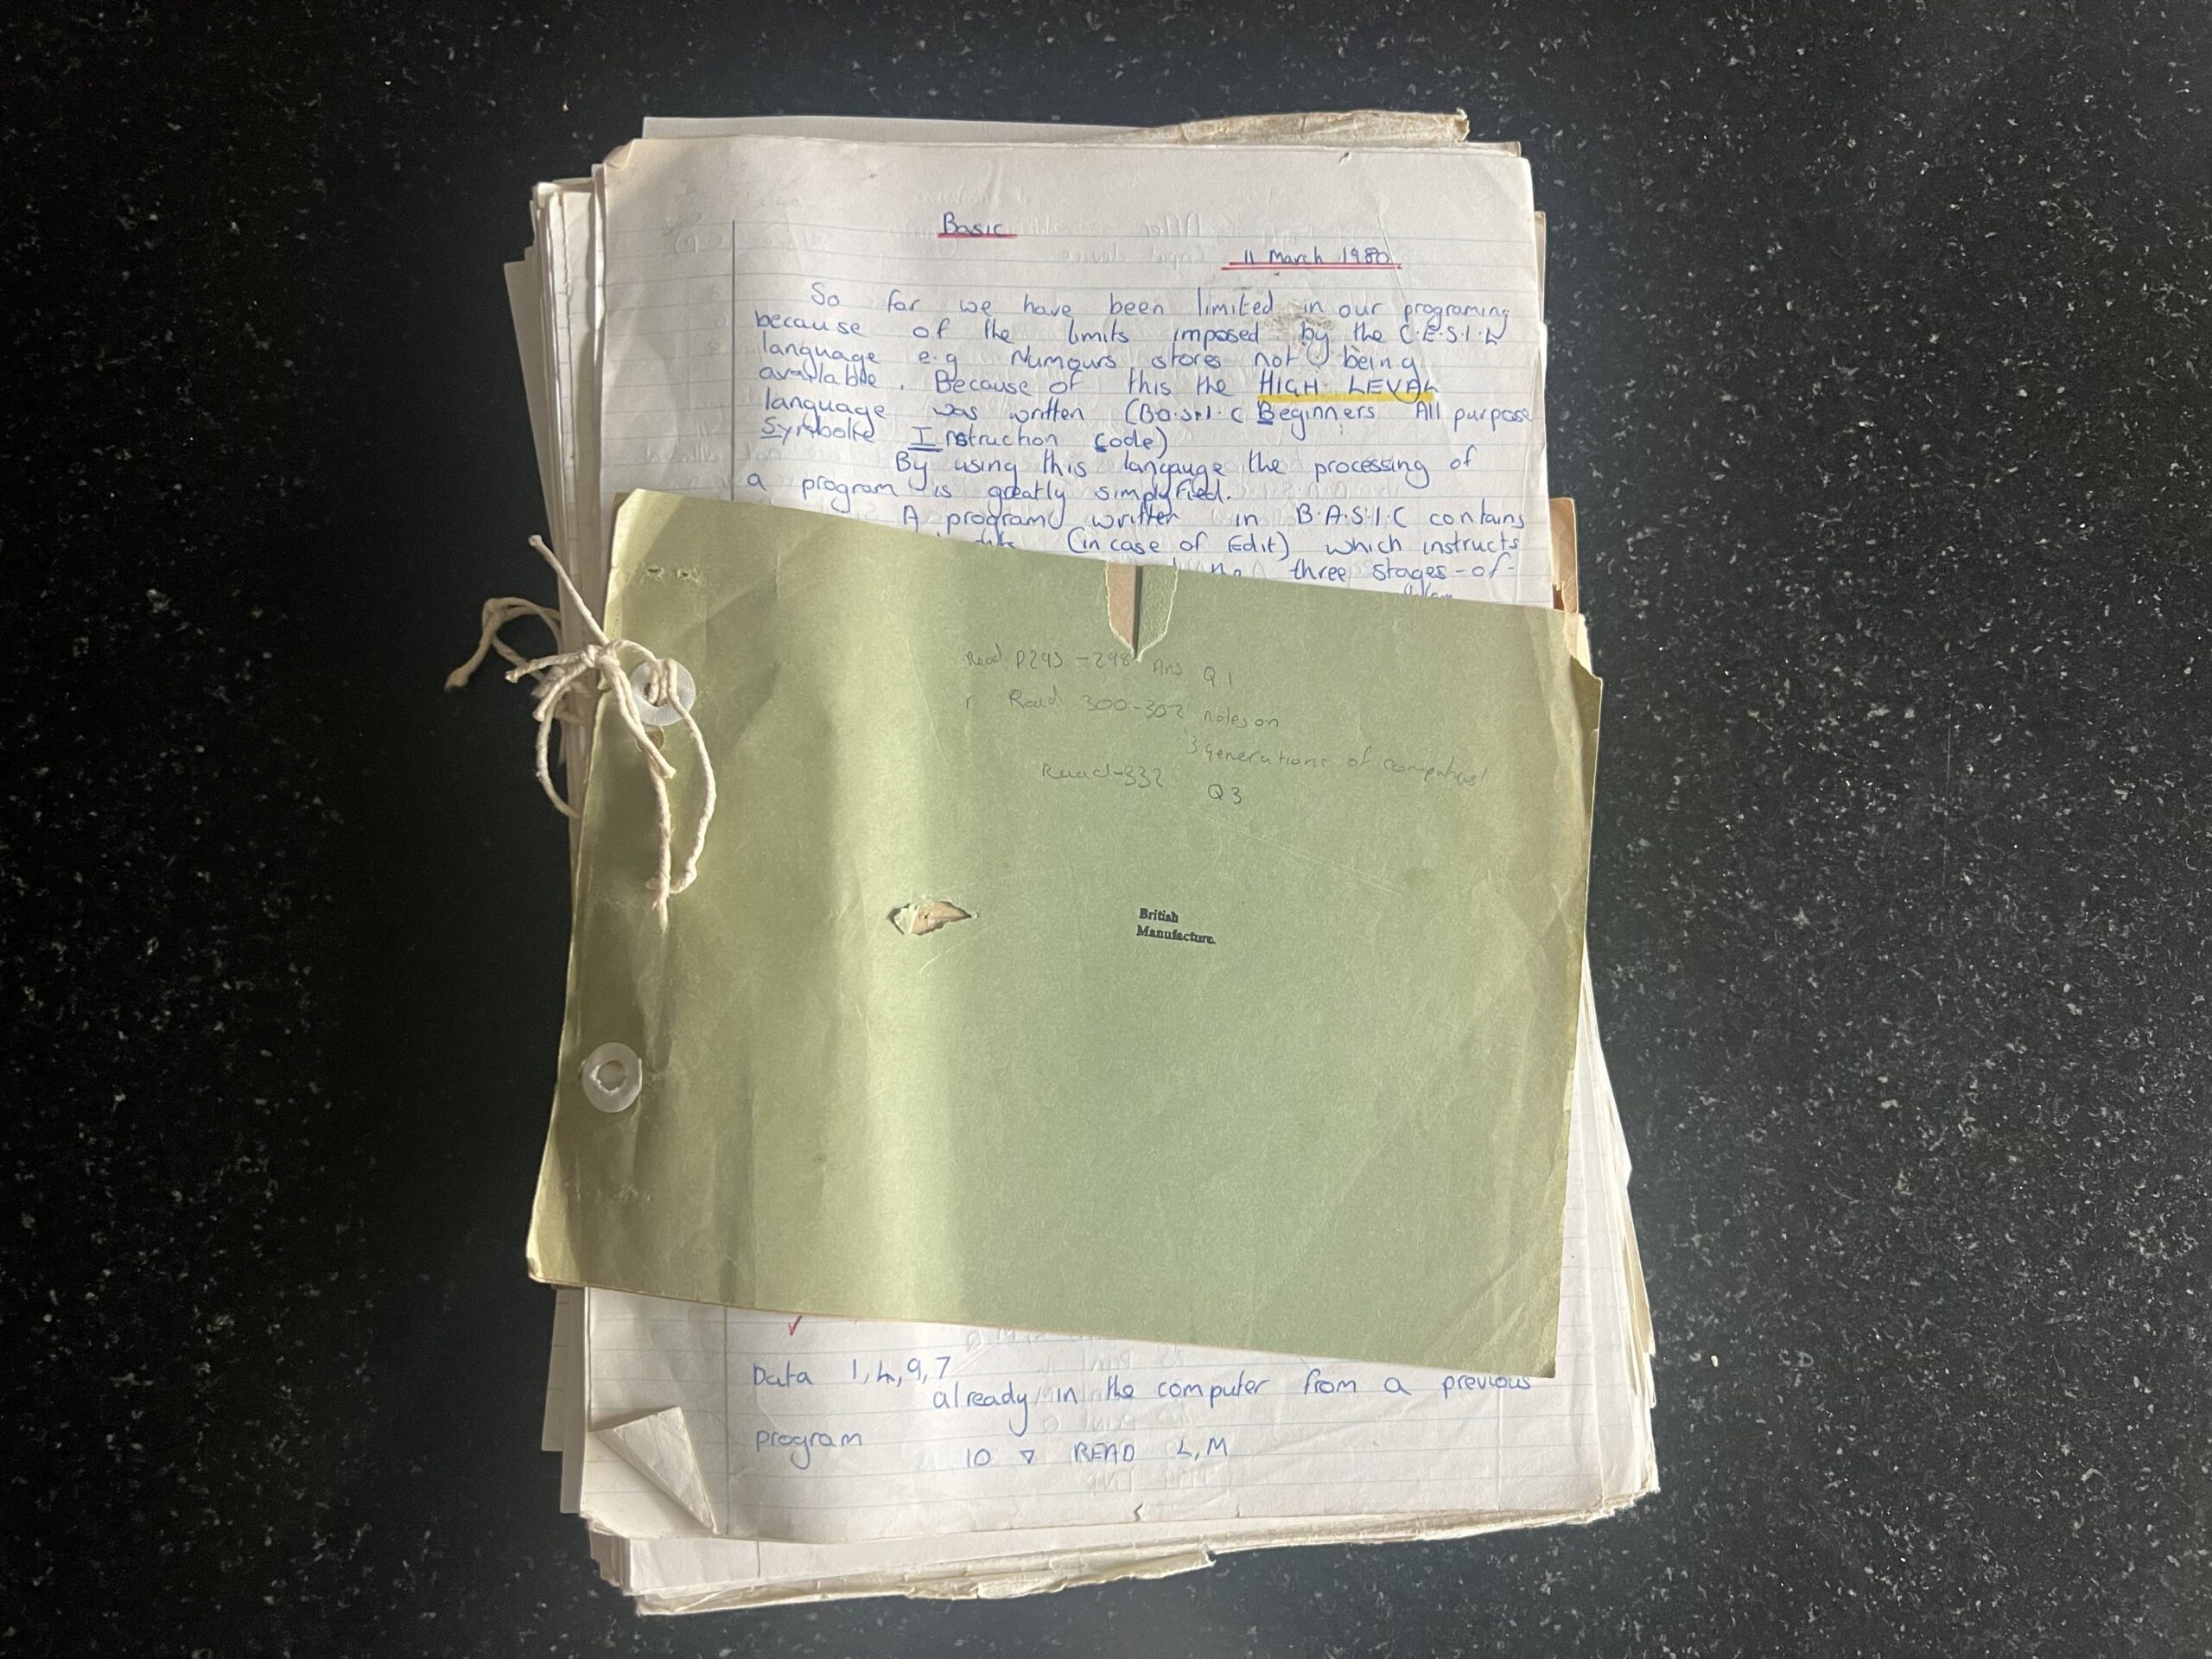 Basic
11 March 1980
So far we have been limited in our programing
because of the limits imposed by the C.E.S.I.L
language e.g Numours stores not being
available. Because of this the HIGH LEVAL
language was written (B.a.s.i.c Beginners All purpose
Symbolic Instruction Code)
By using this langauge the processing of
a program is greatly simplyfied.
A program written in B.A.S.I.C contains
(in case of Edit) which instructs
three stages-of-
Read P295-298 Ans Q1
Read 300-302 notes on
3 generations of computers
Read-332
Q3
British
Manufacture.
Data 1,4,9,7
already in the computer from a previous
program
10 ▽ READ L,M